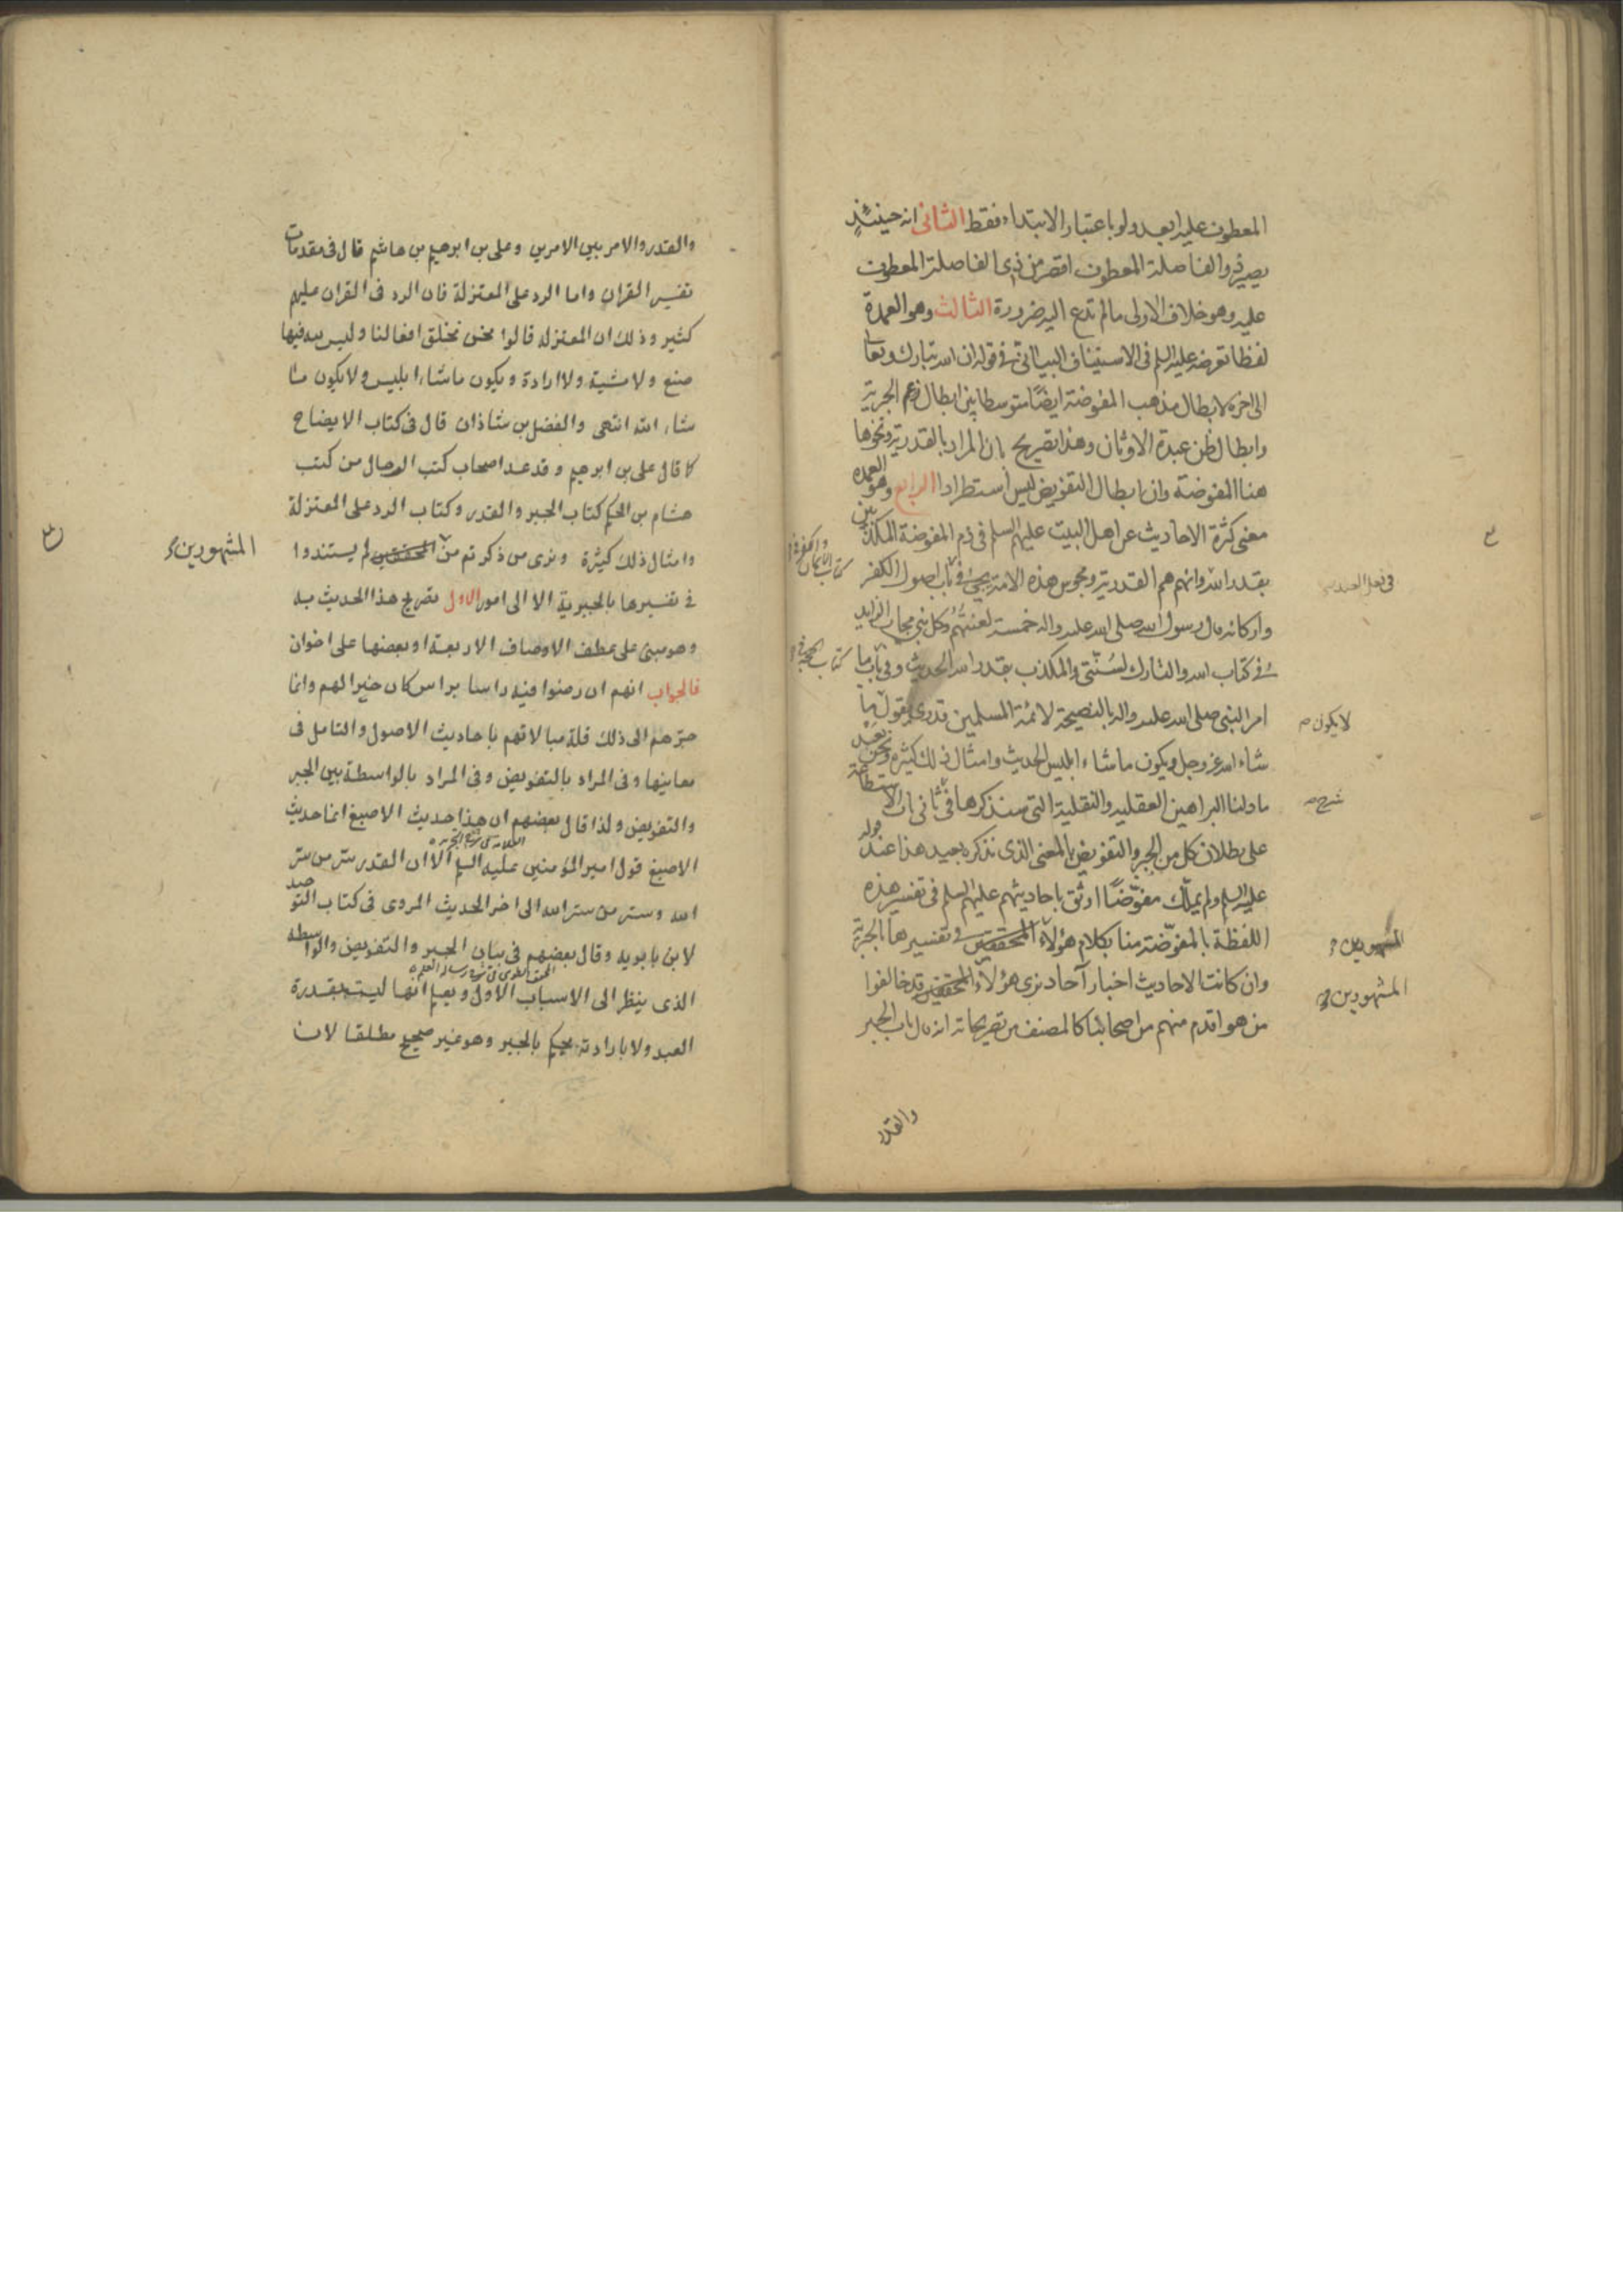 المعطوف عليه ابعد ولو باعتبار الابتداء فقط الثانى انه حينئذٍ
يصير ذو الفاصلة المعطوف اقصر من ذى الفاصلة المعطوف
عليه وهو خلاف الاولى ما لم تدع اليه ضرورة الثالث وهو العمدة
لفظا تعرضه عليه السلم فى الاستيناف البيانى فى قوله ان الله تبارك وتعالى
الى اخره لابطال مذهب المفوضة ايضًا متوسطا بين ابطال زعم الجبرية
وابطال ظن عبدة الاوثان وهذا تصريح بان المراد بالقدرية ونحوها
هنا المفوضة وان ابطال التفويض ليس استطرادا الرابع وهو العمدة
معنى كثرة الاحاديث عن اهل البيت عليهم السلم فى ذم المفوضة المكذبين
بقدر الله وانهم هم القدرية ومجوس هذه الامة يجئ فى باب اصول الكفر
كتاب الايمان والكفر فى
واركانه قال رسول الله صلى الله عليه واله خمسة لعنتهم وكل نبى مجاب الزايد
فى كتاب الله والتارك لسُنّتى والمكذب بقدر الله الحديث وفى باب ما
كتاب الحجة فى
امر النبى صلى الله عليه واله بالنصيحة لائمة المسلمين قدرى يقول ما
لا يكون
شاء الله عز وجل ويكون ما شاء ابليس الحديث وامثال ذلك كثيرة ونحن بعد
ما دلنا البراهين العقلية والنقلية التى سنذكرها فى ثانى باب الاستطاعة
شرح
على بطلان كل من الجبر والتفويض بالمعنى الذى نذكره بعيد هذا عند قوله
عليه السلم ولم يملّك مفوّضًا اوثق باحاديثهم عليهم السلم فى تفسير هذه
اللفظة بالمفوّضة منا بكلام هؤلاء المحققين فى تفسيرها بالجبرية
المشهورين
وان كانت الاحاديث اخبار آحاد نرى هؤلاء المحققين قد خالفوا
المشهورين
من هو اقدم منهم من اصحابنا كالمصنف من تصريحاته انه قال باب الجبر
والقدر
والقدر والامر بين الامرين وعلى بن ابرهيم بن هاشم قال فى مقدمات
تفسير القران واما الرد على المعتزلة فان الرد فى القران عليهم
كثير وذلك ان المعتزلة قالوا نحن نخلق افعالنا وليس لله فيها
صنع ولا مشية ولا ارادة ويكون ما شاء ابليس ولا يكون ما
شاء الله انتهى والفضل بن شاذان قال فى كتاب الايضاح
كما قال على بن ابرهيم وقد عد اصحاب كتب الرجال من كتب
هشام بن الحكم كتاب الجبر والقدر وكتاب الرد على المعتزلة
وامثال ذلك كثيرة ونرى من ذكرتم من المحققين لم يستندوا
المشهورين
فى تفسيرها بالجبرية الا الى امور الاول تصريح هذا الحديث به
وهو مبنى على عطف الاوصاف الاربعة او بعضها على اخوان
فالجواب انهم ان رضوا فيه راسا براس كان خيرا لهم وانما
جرّهم الى ذلك قلة مبالاتهم باحاديث الاصول والتامل فى
معانيها وفى المراد بالتفويض وفى المراد بالواسطة بين الجبر
والتفويض ولذا قال بعضهم ان هذا حديث الاصبغ انما حديث
الاصبغ قول امير المؤمنين عليه السلم الا ان القدر ستر من ستر
الله وستر من ستر الله الى اخر الحديث المروى فى كتاب التوحيد
لابن بابويه وقال بعضهم فى بيان الجبر والتفويض والواسطة
الذى ينظر الى الاسباب الاول ويعلم انها ليست بقدرة
العبد ولا بارادته يحكم بالجبر وهو غير صحيح مطلقا لان